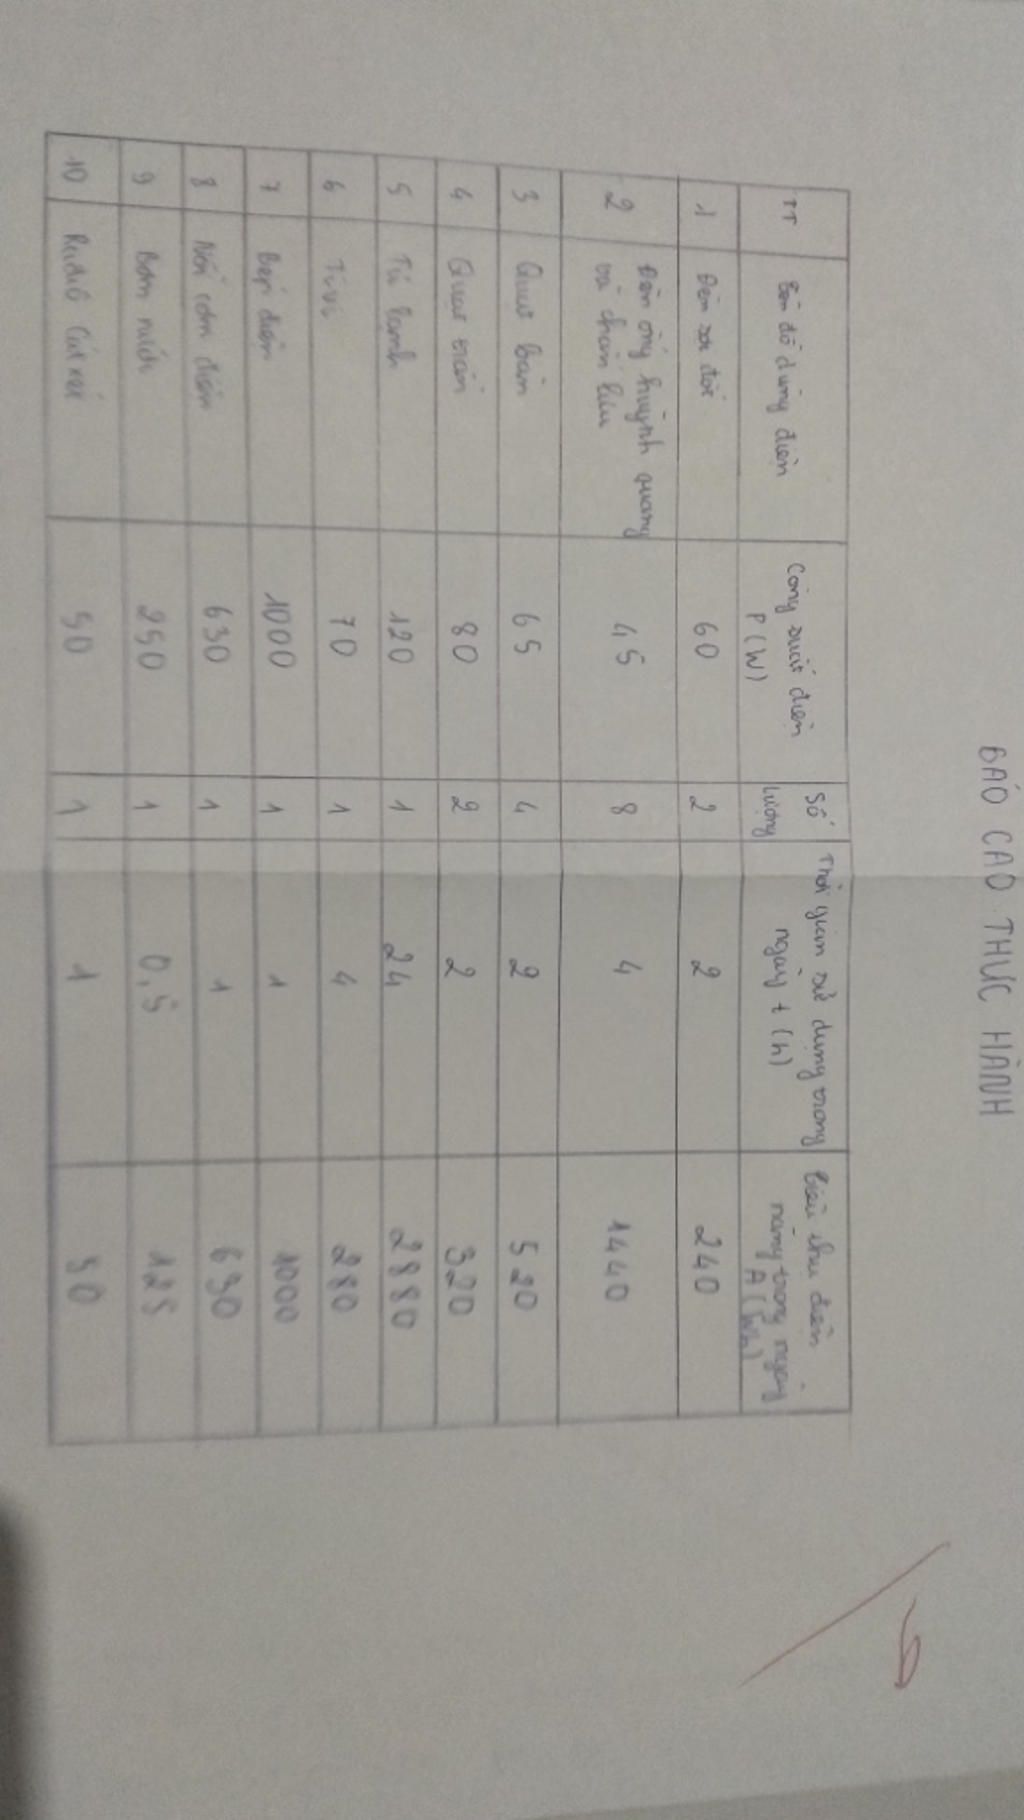 BÁO CÁO THỰC HÀNH
9
TT Tên đồ dùng điện Công suất điện P(W) Số lượng Thời gian sử dụng trong ngày t (h) Tiêu thụ điện năng trong ngày A (Wh)
1 Đèn sợi đốt 60 2 2 240
2 Đèn ống huỳnh quang và chấn lưu 45 8 4 1440
3 Quạt bàn 65 4 2 520
4 Quạt trần 80 2 2 320
5 Tủ lạnh 120 1 24 2880
6 Ti vi 70 1 4 280
7 Bếp điện 1000 1 1 1000
8 Nồi cơm điện 630 1 1 630
9 Bơm nước 250 1 0,5 125
10 Radio Cát xét 50 1 1 50